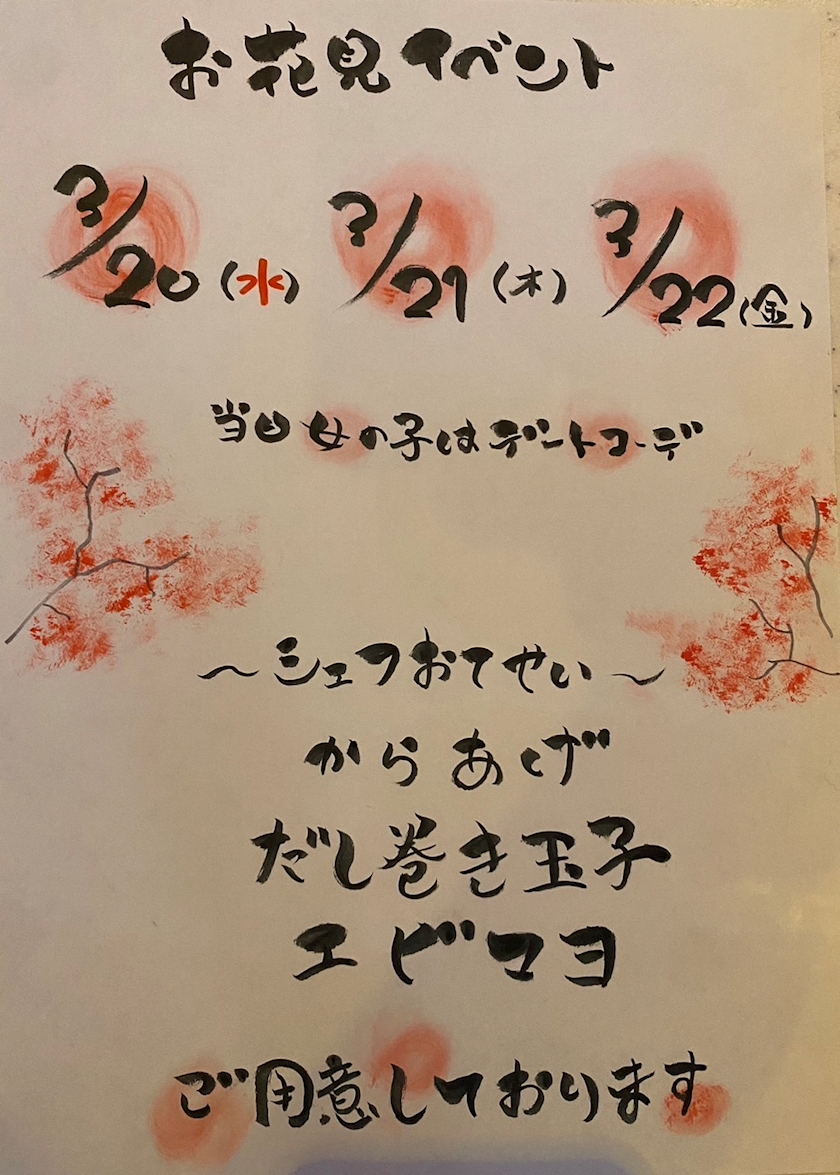 お花見イベント
3/20(水) 3/21(木) 3/22(金)
当日女の子はデートコーデ
～シェフおてせい～
からあげ
だし巻き玉子
エビマヨ
ご用意しております